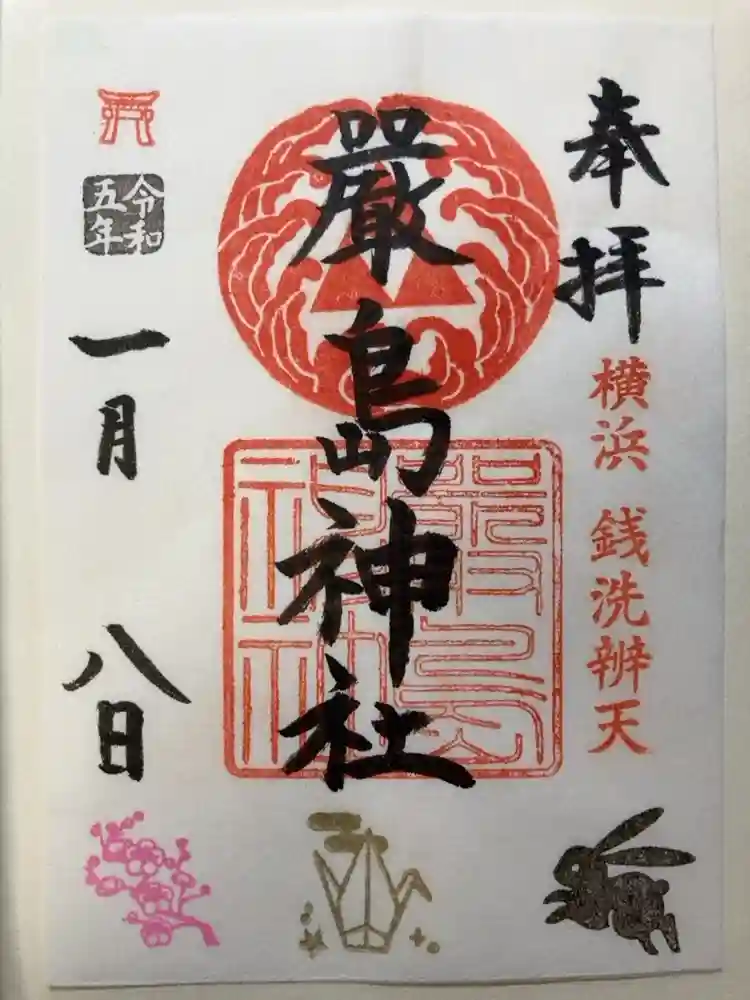 奉拝
横浜 銭洗辨天
嚴島神社
嚴島
神社
令和
五年
一月 八日